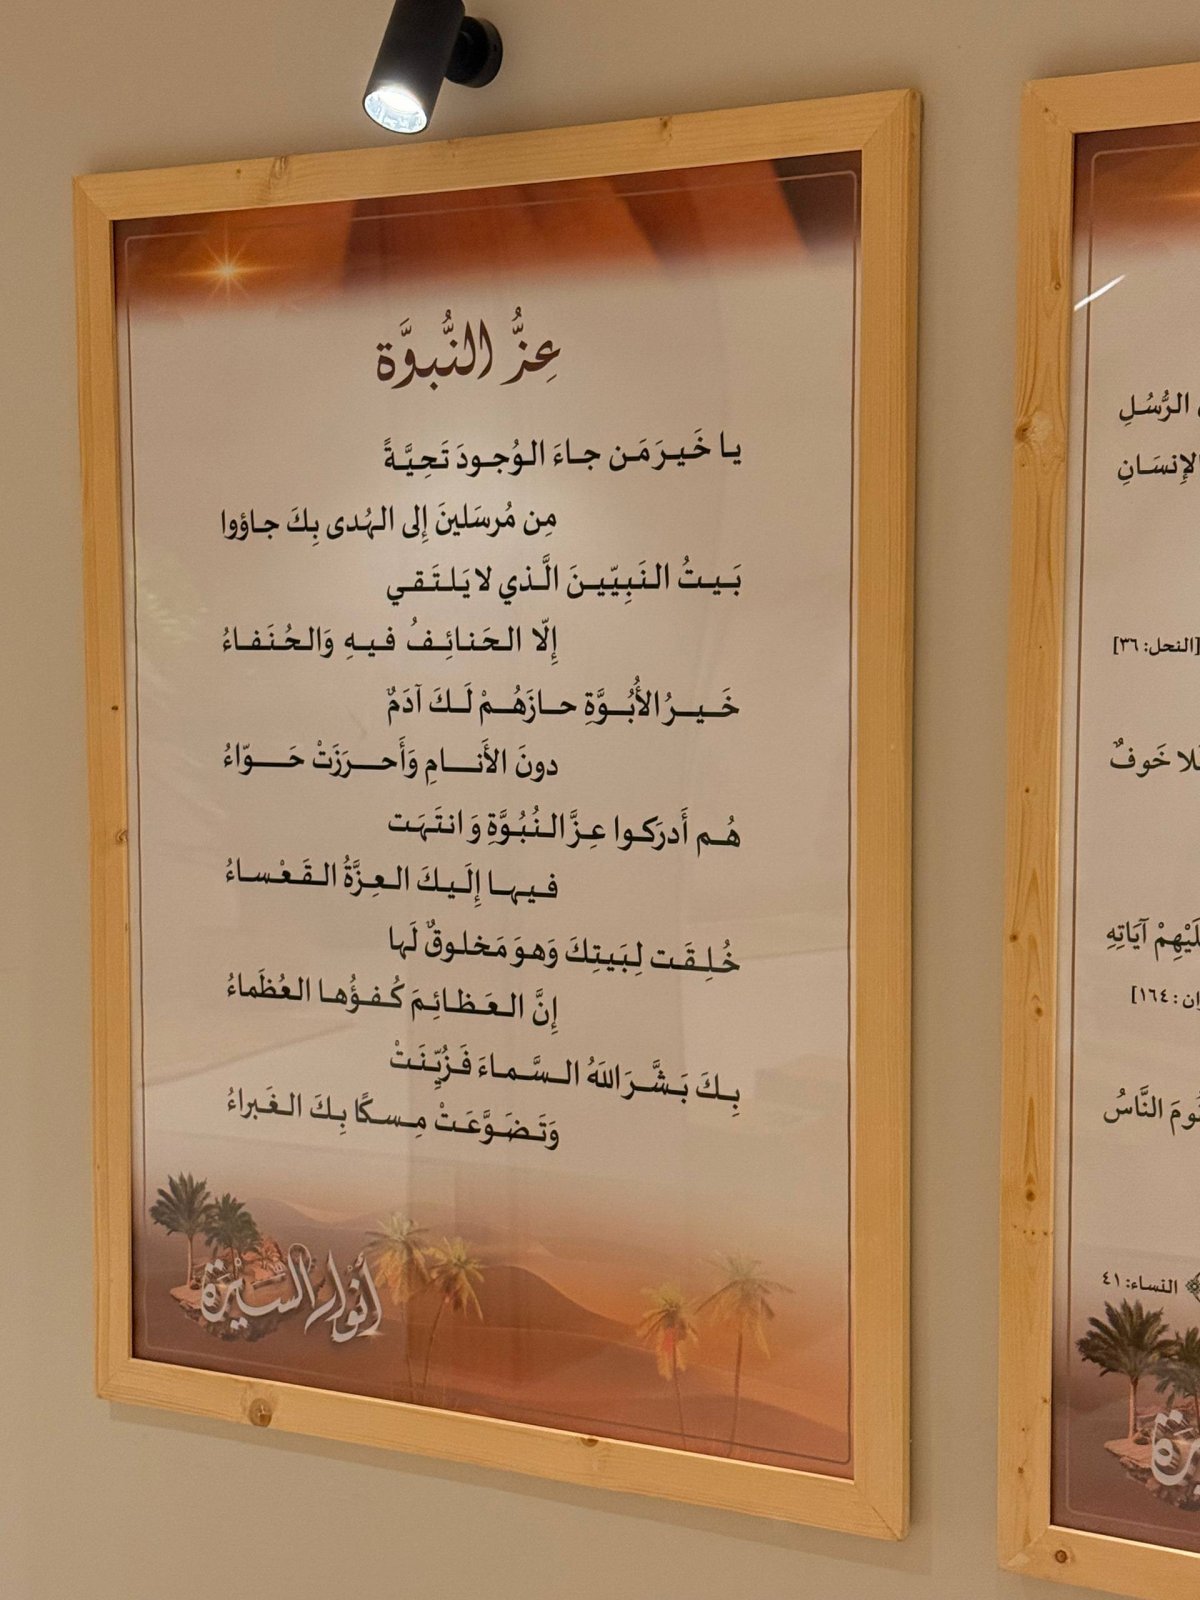 عِزُّ النُّبوَّة
يا خَيرَ مَن جاءَ الوُجودَ تَحِيَّةً
مِن مُرسَلينَ إِلى الهُدى بِكَ جاؤوا
بَيتُ النَبِيّينَ الَّذي لا يَلتَقي
إِلّا الحَنائِفُ فيهِ وَالحُنَفاءُ
خَيرُ الأُبُوَّةِ حازَهُمْ لَكَ آدَمٌ
دونَ الأَنامِ وَأَحرَزَتْ حَوّاءُ
هُم أَدرَكوا عِزَّ النُبُوَّةِ وَانتَهَت
فيها إِلَيكَ العِزَّةُ القَعْساءُ
خُلِقَت لِبَيتِكَ وَهوَ مَخلوقٌ لَها
إِنَّ العَظائِمَ كُفؤُها العُظَماءُ
بِكَ بَشَّرَ اللَهُ السَّماءَ فَزُيِّنَتْ
وَتَضَوَّعَتْ مِسكًا بِكَ الغَبراءُ
أنوار السيرة
الرُّسُلِ
الإِنسَانِ
[النحل: ٣٦]
خَوفٌ
آيَاتِهِ
: ١٦٤]
النَّاسُ
النساء: ٤١